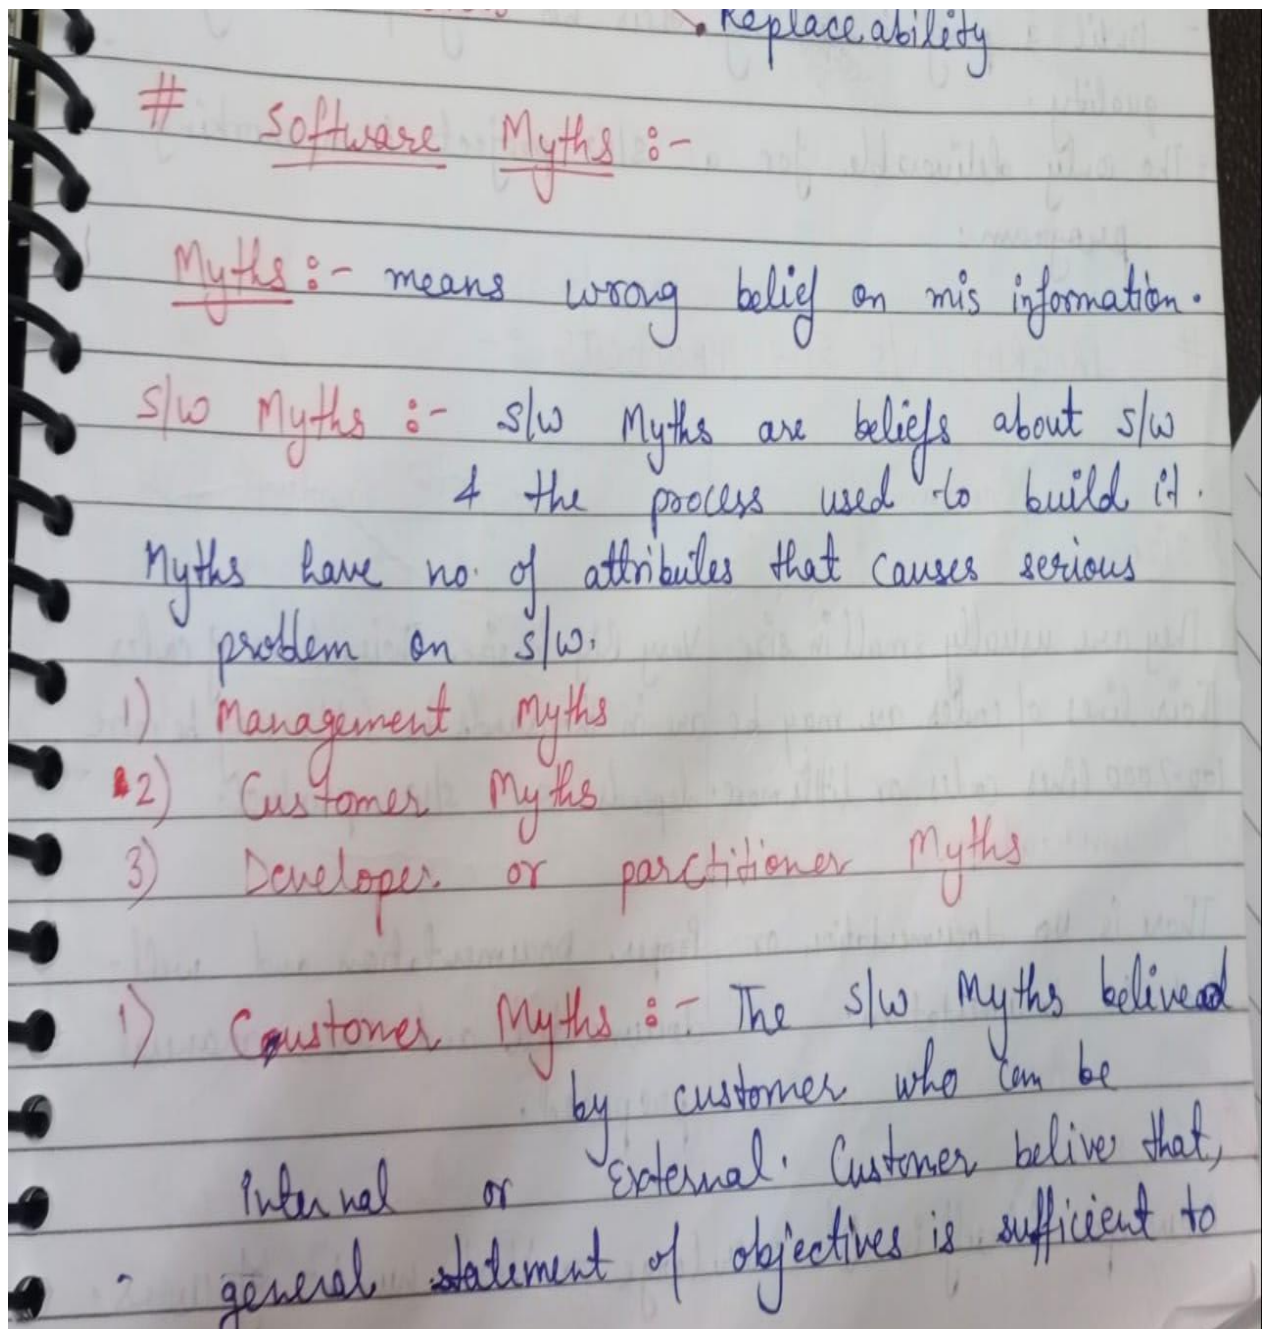 Replaceability
# Software Myths :-
Myths :- means wrong belief on mis information.
S/W Myths :- S/W Myths are beliefs about S/W
& the process used to build it.
Myths have no. of attributes that causes serious
problem on S/W.
1) Management Myths
2) Customer Myths
3) Developer or parctitioner Myths
1) Customer Myths :- The S/W Myths belived
by customer who can be
Internal or External. Customer belive that,
general statement of objectives is sufficient to